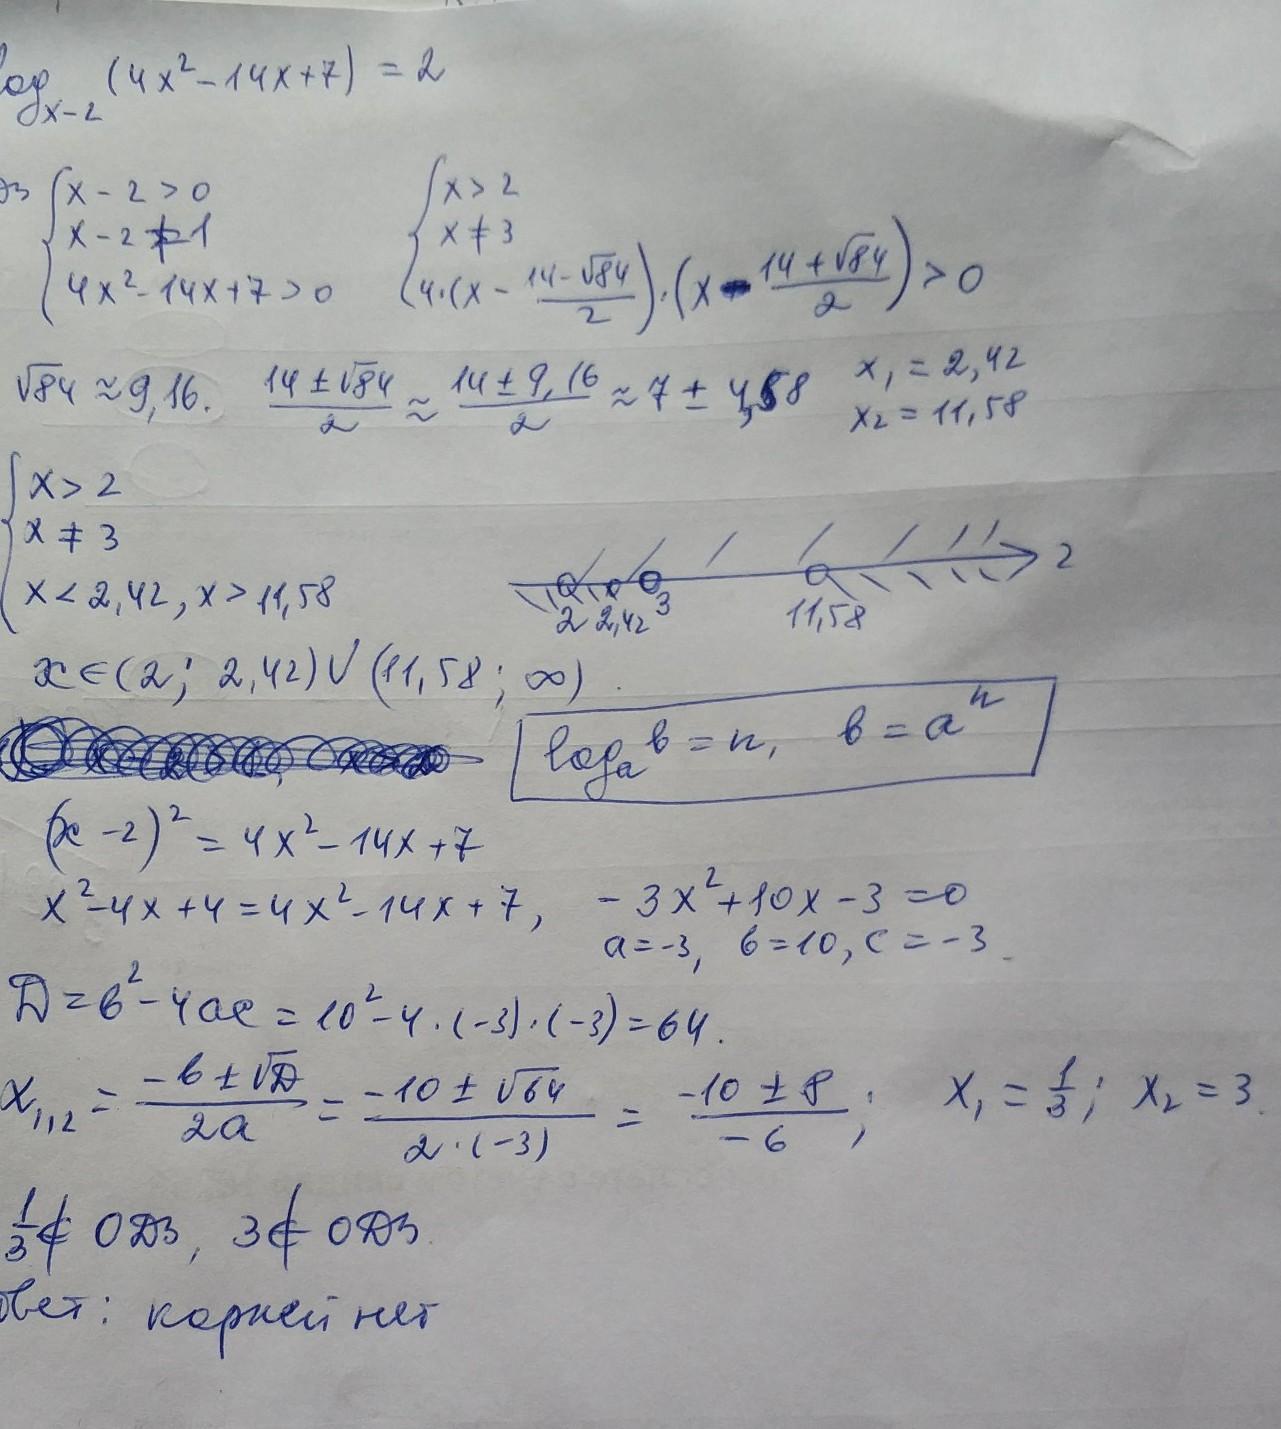 log_{x-2} (4x² - 14x + 7) = 2
{ x - 2 > 0 { x > 2
x - 2 ≠ 1 x ≠ 3
4x² - 14x + 7 > 0 4·(x - \frac{14-√84}{2})·(x - \frac{14+√84}{2}) > 0
√84 ≈ 9,16. \frac{14±√84}{2} ≈ \frac{14±9,16}{2} ≈ 7 ± 4,58 x₁ = 2,42
x₂ = 11,58
{ x > 2
x ≠ 3
x < 2,42, x > 11,58
2 2,42 3 11,58 2
x ∈ (2; 2,42) ∪ (11,58; ∞).
log_a b = n, b = aⁿ
(x - 2)² = 4x² - 14x + 7
x² - 4x + 4 = 4x² - 14x + 7, - 3x² + 10x - 3 = 0
a = -3, b = 10, c = -3.
D = b² - 4ac = 10² - 4·(-3)·(-3) = 64.
x₁,₂ = \frac{-b±√D}{2a} = \frac{-10±√64}{2·(-3)} = \frac{-10±8}{-6}; x₁ = \frac{1}{3}; x₂ = 3.
\frac{1}{3} ∉ ОДЗ, 3 ∉ ОДЗ.
твет: корней нет